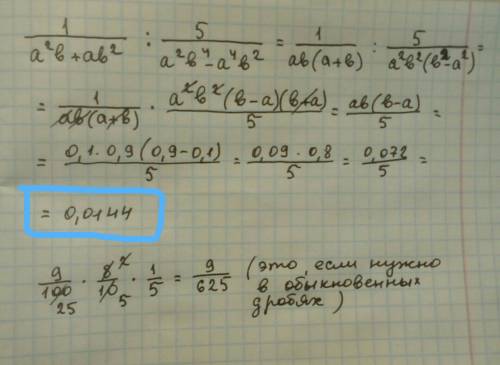 1/(a²в+ав²) : 5/(a²в⁴-a⁴в²) = 1/(ав(a+в)) : 5/(a²в²(в²-a²)) =
= 1/(ав(a+в)) · a²в²(в-a)(в+a)/5 = ав(в-a)/5 =
= 0,1·0,9(0,9-0,1)/5 = 0,09·0,8/5 = 0,072/5 =
= 0,0144
9/100 25 · 8 2/10 5 · 1/5 = 9/625 (это, если нужно
в обыкновенных
дробях)